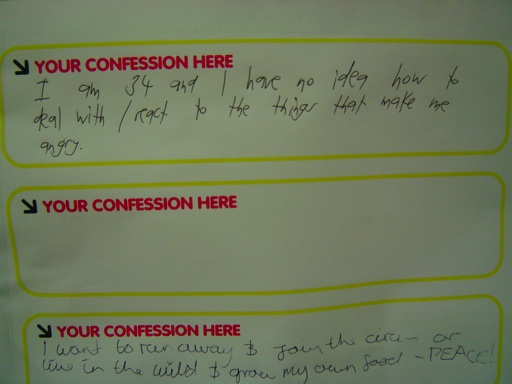 YOUR CONFESSION HERE
I am 34 and I have no idea how to
deal with / react to the things that make me
angry.
YOUR CONFESSION HERE
YOUR CONFESSION HERE
I want to run away & join the circus or
live in the wild & grow my own food - PEACE!